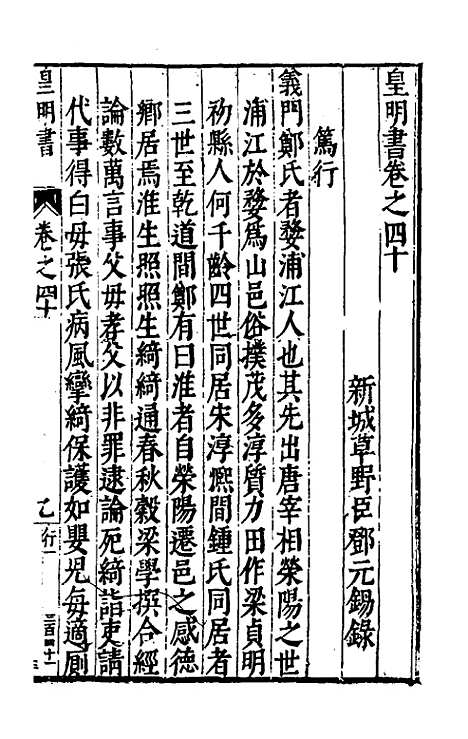 皇明書卷之四十
新城草野臣鄧元錫錄
篤行
義門鄭氏者婺浦江人也其先出唐宰相榮陽之世
浦江於婺爲山邑俗撲茂多淳質力田作梁貞明
初縣人何千齡四世同居宋淳熈間鍾氏同居者
三世至乾道間鄭有曰淮者自榮陽遷邑之感德
鄉居焉淮生照照生綺綺通春秋穀梁學撰合經
論數萬言事父毋孝父以非罪逮論死綺詣吏請
代事得白毋張氏病風攣綺保護如嬰児每適厠
皇明書
卷之四十
乙行一